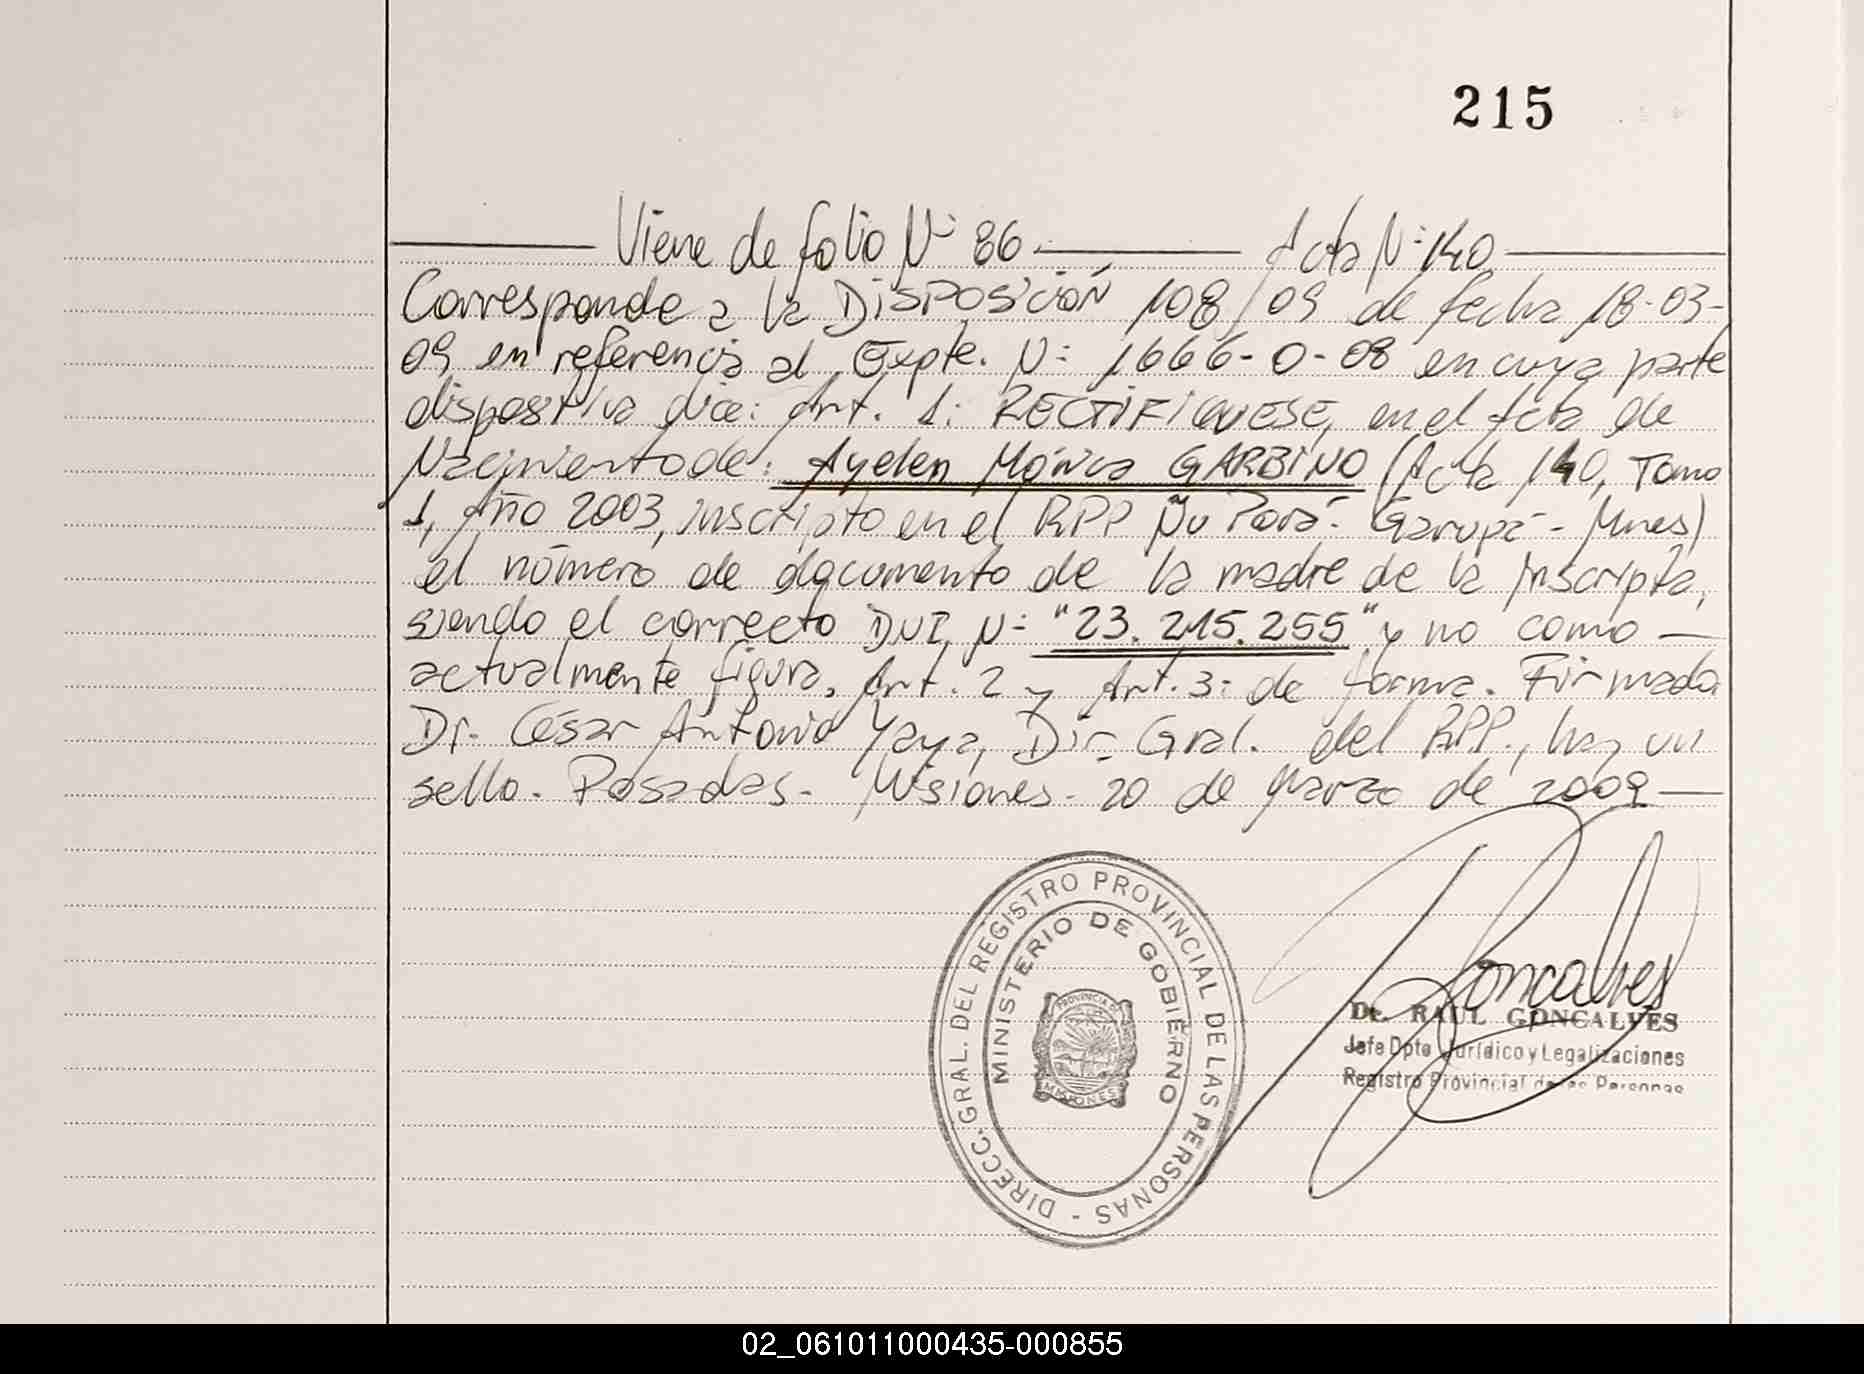 215
Viene de folio Nº 86 Acta Nº 140
Corresponde a la DISPOSICIÓN 108/09 de fecha 18-03-
09 en referencia al Expte. Nº 1666-O-08 en cuya parte
dispositiva dice: Art. 1: RECTIFIQUESE, en el Acta de
Nacimiento de: Ayelen Mónica GARBINO (Acta 140, Tomo
1, Año 2003, inscripto en el RPP Ñu Porá - Garupá - Mnes)
el número de documento de la madre de la inscripta,
siendo el correcto DNI Nº "23.215.255" y no como
actualmente figura. Art. 2 y Art. 3: de forma. Firmada
Dr. César Antonio Yaya, Dir. Gral. del RPP., hay un
sello. Posadas - Misiones - 20 de marzo de 2009
DIRECC. GRAL. DEL REGISTRO PROVINCIAL DE LAS PERSONAS -
MINISTERIO DE GOBIERNO
PROVINCIA DE
MISIONES
Goncalves
Dr. RAUL GONCALVES
Jefe Dpto Jurídico y Legalizaciones
Registro Provincial de las Personas
02_061011000435-000855